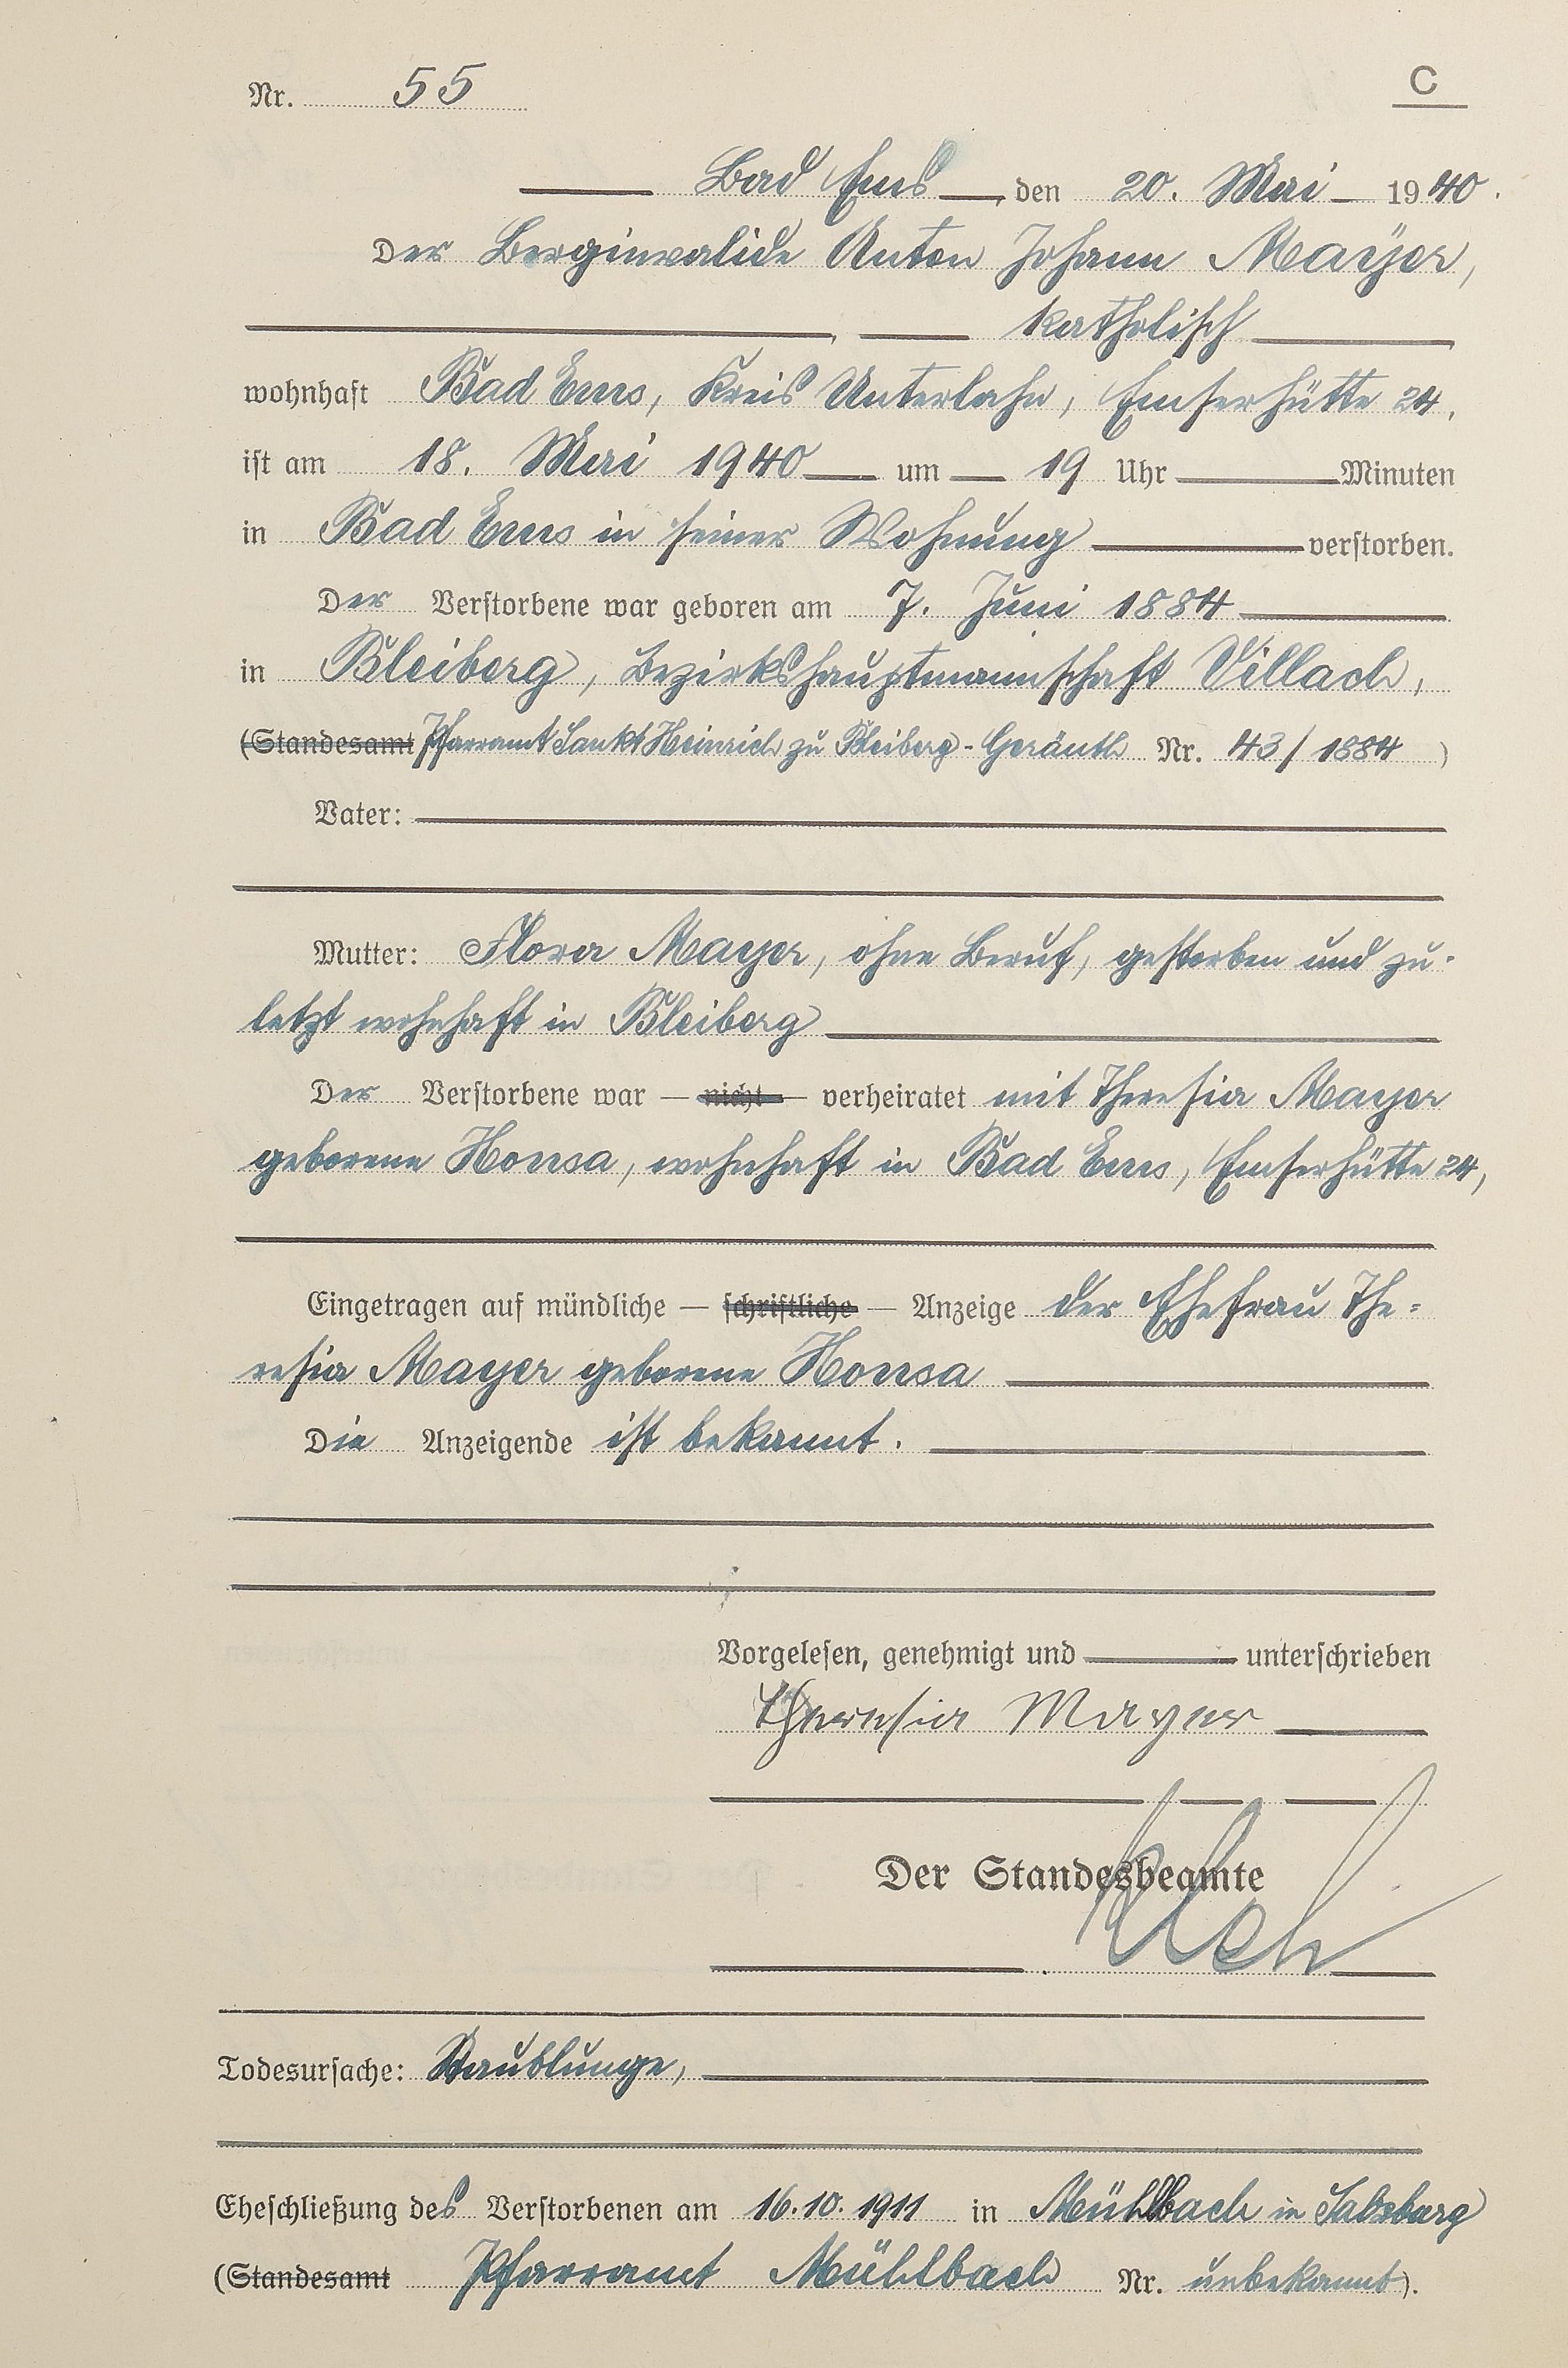 Nr. 55
C
Bad Ems, den 20. Mai 1940.
Der Berginvalide Anton Johann Mayer,
katholisch
wohnhaft Bad Ems, Kreis Unterlahn, Emserhütte 24,
ist am 18. Mai 1940 um 19 Uhr Minuten
in Bad Ems in seiner Wohnung verstorben.
Der Verstorbene war geboren am 7. Juni 1884
in Bleiberg, Bezirkshauptmannschaft Villach,
(Standesamt Pfarramt Sankt Heinrich zu Bleiberg-Geräuth Nr. 43/1884)
Vater:
Mutter: Flora Mayer, ohne Beruf, gestorben und zu-
letzt wohnhaft in Bleiberg
Der Verstorbene war — nicht — verheiratet mit Theresia Mayer
geborene Honsa, wohnhaft in Bad Ems, Emserhütte 24,
Eingetragen auf mündliche — schriftliche — Anzeige der Ehefrau The-
resia Mayer geborene Honsa
Die Anzeigende ist bekannt.
Vorgelesen, genehmigt und unterschrieben
Theresia Mayer
Der Standesbeamte
Todesursache: Staublunge,
Eheschließung des Verstorbenen am 16.10.1911 in Mühlbach in Salzburg
(Standesamt Pfarramt Mühlbach Nr. unbekannt).